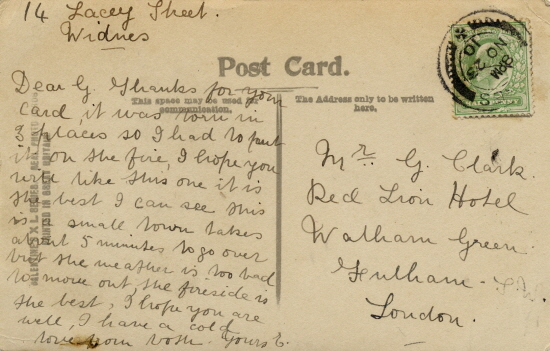 14 Lacey Street.
Widnes
Post Card.
This space may be used for
communication.
The Address only to be written
here.
Dear G. Thanks for your
card, it was torn in
3 places so I had to put
it on the fire, I hope you
will like this one it is
the best I can see this
is a small town takes
about 5 minutes to go over
but the weather is too bad
to move out, the fireside is
the best, I hope you are
well, I have a cold
love from both. Yours E.
Mr. G. Clark.
Red Lion Hotel
Walham Green
Fulham
London.
VALENTINE'S
PRINTED IN GREAT BRITAIN
NO 25
10